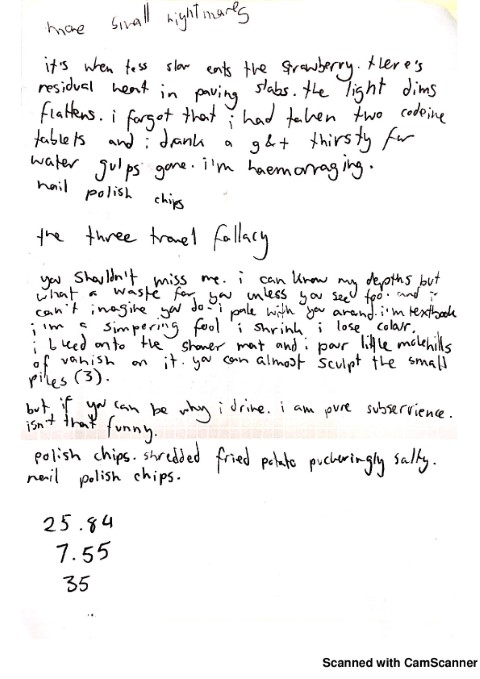 more small nightmares
it's when tess slow eats the strawberry. there's
residual heat in paving slabs. the light dims
flattens. i forgot that i had taken two codeine
tablets and i drank a g&t thirsty for
water gulps gone. i'm haemorraging.
nail polish chips
the three travel fallacy
you shouldn't miss me. i can know my depths but
what a waste for you unless you see too. and i
can't imagine you do. i pale with you around. i'm textbook
i'm a simpering fool i shrink i lose colour.
i bleed onto the shower mat and i pour little molehills
of vanish on it. you can almost sculpt the small
piles (3).
but if you can be why i drive. i am pure subservience.
isn't that funny.
polish chips. shredded fried potato puckeringly salty.
nail polish chips.
25.84
7.55
35
Scanned with CamScanner